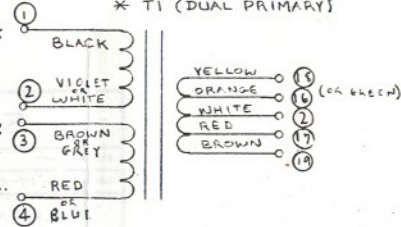 * T1 (DUAL PRIMARY)
1
BLACK
VIOLET
OR
WHITE
2
3
BROWN
OR
GREY
RED
OR
4 BLUE
YELLOW 15
ORANGE 16 (OR GREEN)
WHITE 2
RED 17
BROWN 19